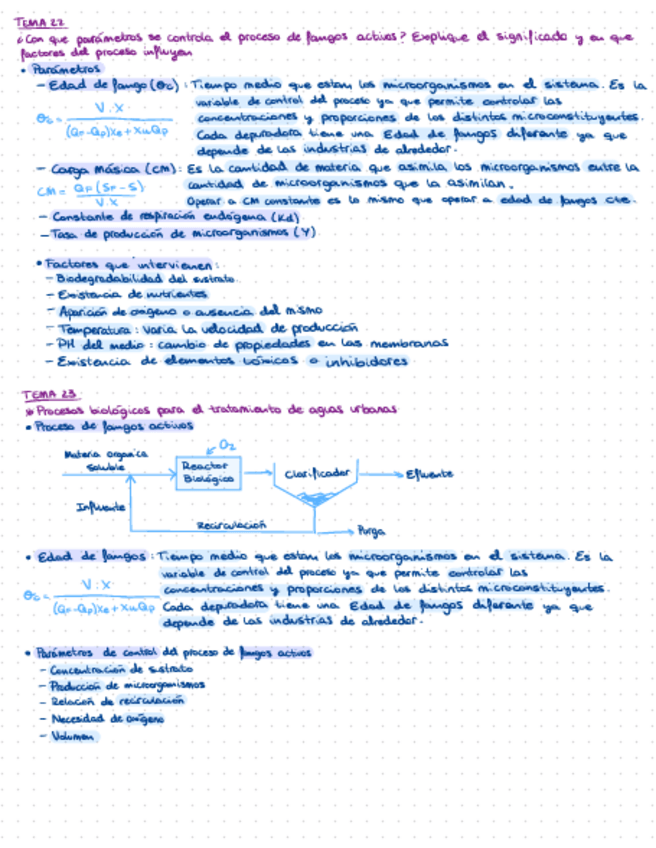 TEMA 22
¿Con que parámetros se controla el proceso de fangos activos? Explique el significado y en que
factores del proceso influyen
• Parámetros
– Edad de fango (θc): Tiempo medio que estan los microorganismos en el sistema. Es la
variable de control del proceso ya que permite controlar las
concentraciones y proporciones de los distintos microconstituyentes.
Cada depuradora tiene una Edad de fangos diferente ya que
depende de las industrias de alrededor.
θc = V·X / (QF-Qp)Xe + XuQp
– Carga Másica (CM): Es la cantidad de materia que asimila los microorganismos entre la
cantidad de microorganismos que la asimilan.
CM = QF(SF-S) / V·X
Operar a CM constante es lo mismo que operar a edad de fangos cte.
– Constante de respiración endógena (Kd)
– Tasa de producción de microorganismos (Y)
• Factores que intervienen:
– Biodegradabilidad del sustrato
– Existencia de nutrientes
– Aparición de oxígeno o ausencia del mismo
– Temperatura: varia la velocidad de producción
– PH del medio: cambio de propiedades en las membranas
– Existencia de elementos tóxicos o inhibidores
TEMA 23
* Procesos biológicos para el tratamiento de aguas urbanas
• Proceso de fangos activos
O2
Materia organica
Soluble
Reactor
Biológico
Clarificador
Efluente
Influente
Recirculación
Purga
• Edad de fangos: Tiempo medio que estan los microorganismos en el sistema. Es la
variable de control del proceso ya que permite controlar las
concentraciones y proporciones de los distintos microconstituyentes.
Cada depuradora tiene una Edad de fangos diferente ya que
depende de las industrias de alrededor.
θc = V·X / (QF-Qp)Xe + XuQp
• Parámetros de control del proceso de fangos activos
– Concentración de sustrato
– Producción de microorganismos
– Relación de recirculación
– Necesidad de oxígeno
– Volumen